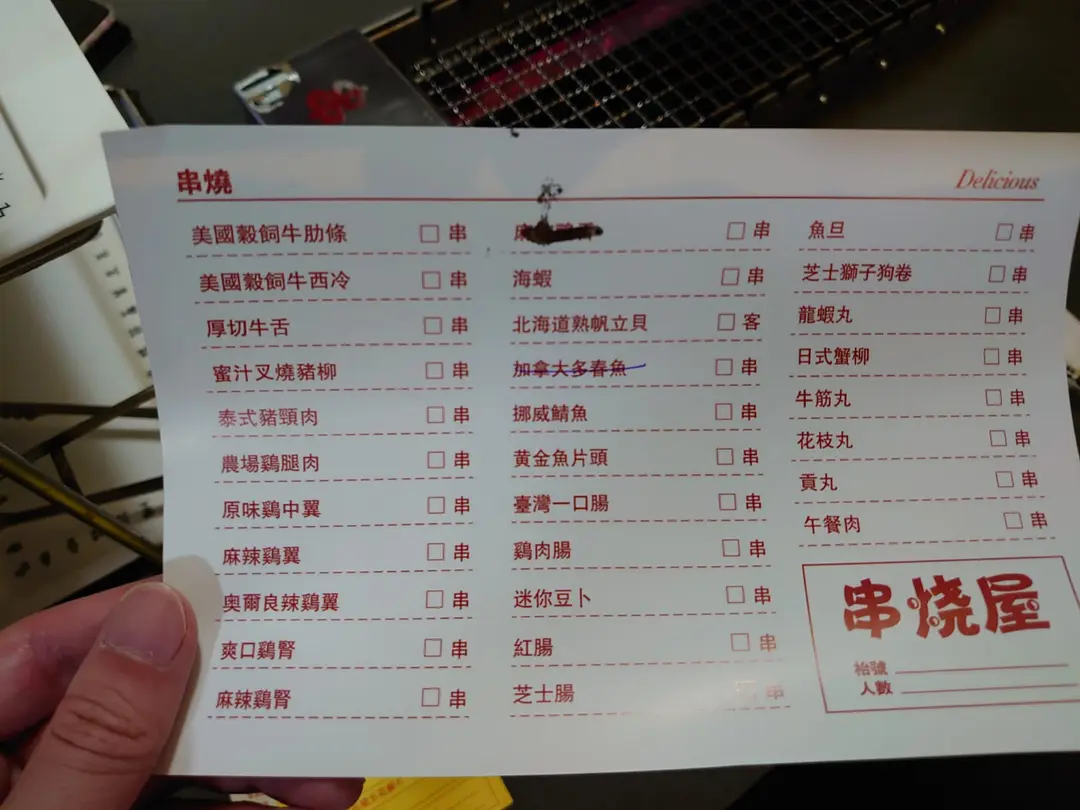 串燒
Delicious
美國穀飼牛肋條 □ 串
美國穀飼牛西冷 □ 串
厚切牛舌 □ 串
蜜汁叉燒豬柳 □ 串
泰式豬頸肉 □ 串
農場鷄腿肉 □ 串
原味鷄中翼 □ 串
麻辣鷄翼 □ 串
奧爾良辣鷄翼 □ 串
爽口鷄腎 □ 串
麻辣鷄腎 □ 串
□ 串
海蝦 □ 串
北海道熟帆立貝 □ 客
加拿大多春魚 □ 串
挪威鯖魚 □ 串
黄金魚片頭 □ 串
臺灣一口腸 □ 串
鷄肉腸 □ 串
迷你豆卜 □ 串
紅腸 □ 串
芝士腸 □ 串
魚旦 □ 串
芝士獅子狗卷 □ 串
龍蝦丸 □ 串
日式蟹柳 □ 串
牛筋丸 □ 串
花枝丸 □ 串
貢丸 □ 串
午餐肉 □ 串
串烧屋
枱號
人數